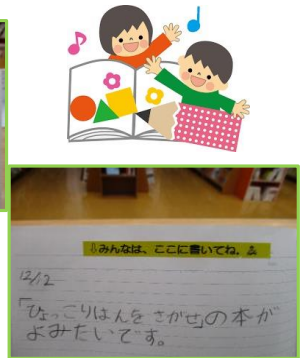 ↓みんなは、ここに書いてね。
12/12
「ひょっこりはんをさがせ」の本が
よみたいです。